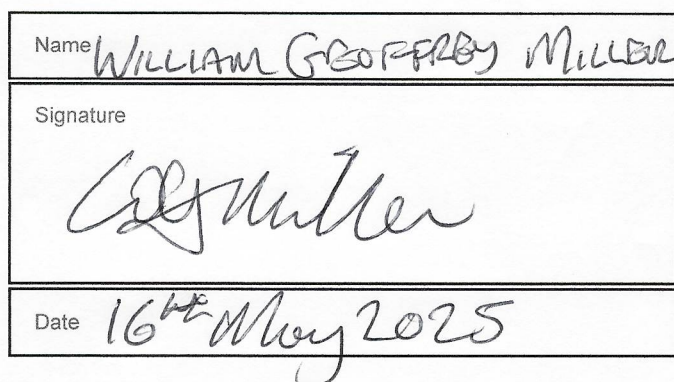 Name WILLIAM GEOFFREY MILLER
Signature
WG Miller
Date 16th May 2025